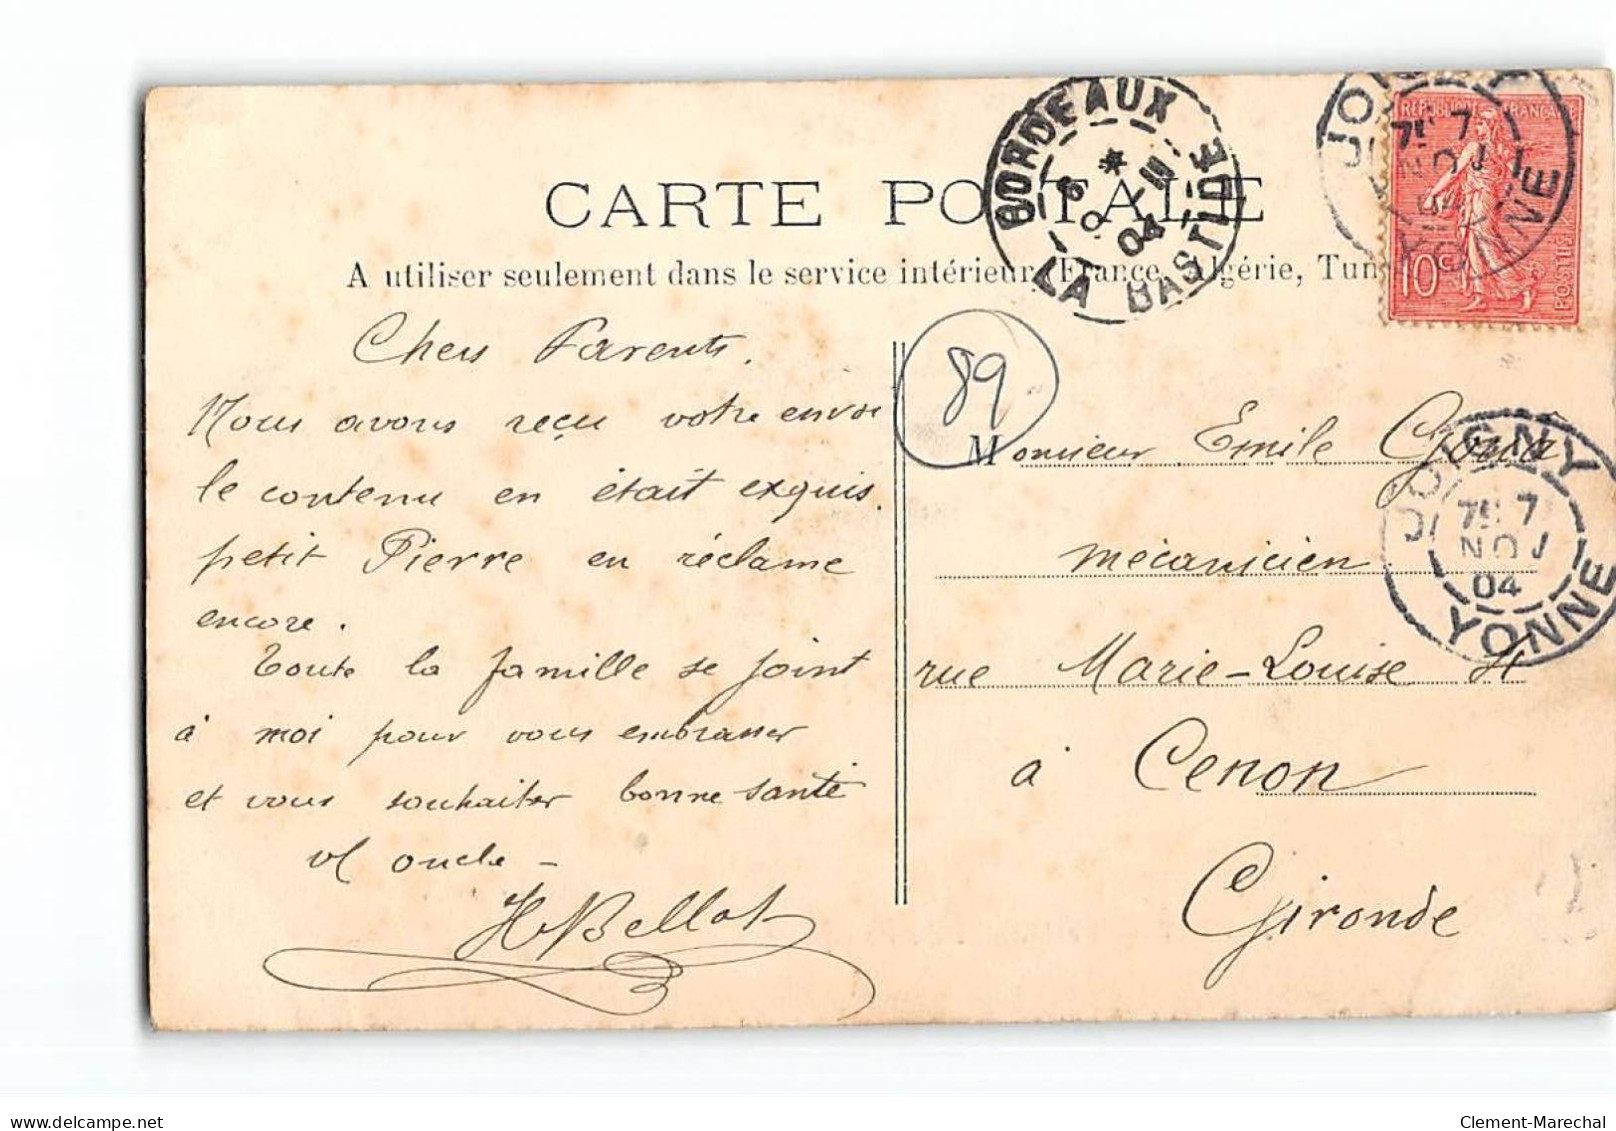 CARTE POSTALE
A utiliser seulement dans le service intérieur, (France, Algérie, Tun
BORDEAUX
8 * III
9
04
LA BASTIDE
JOIGNY
7 7
NOV
04
YONNE
REPUBLIQUE FRANÇAISE
10 c
POSTES
89
Chers Parents.
Nous avons reçu votre envoi
le contenu en était exquis.
petit Pierre en réclame
encore.
Toute la famille se joint
à moi pour vous embrasser
et vous souhaiter bonne santé
vt oncle –
HBellot
Monsieur Emile
mécanicien
rue Marie-Louise 4
à Cenon
Gironde
JOIGNY
7 7
NOV
04
YONNE
Clement-Marechal
delcampe.net